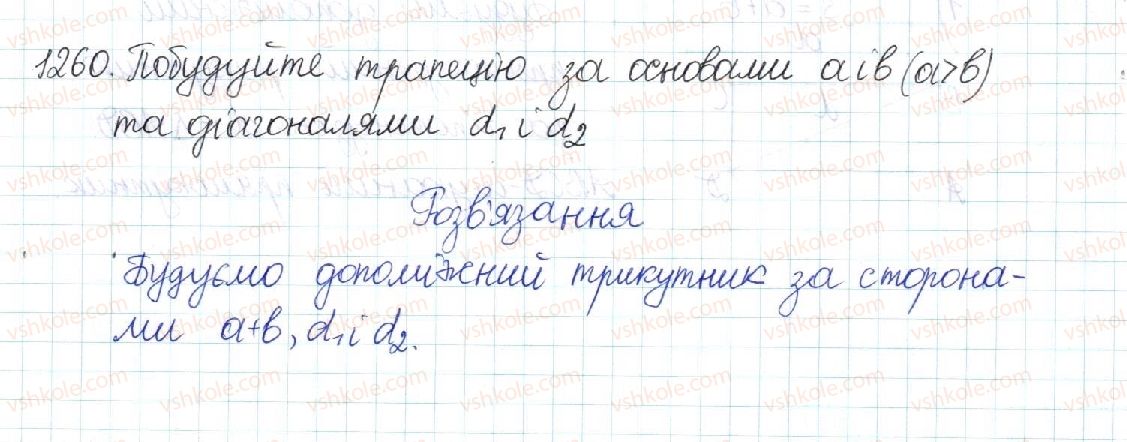 1260. Побудуйте трапецію за основами а і в (а>в)
та діагоналями d₁ і d₂
Розв'язання
Будуємо допоміжний трикутник за сторона-
ми а+в, d₁ і d₂.